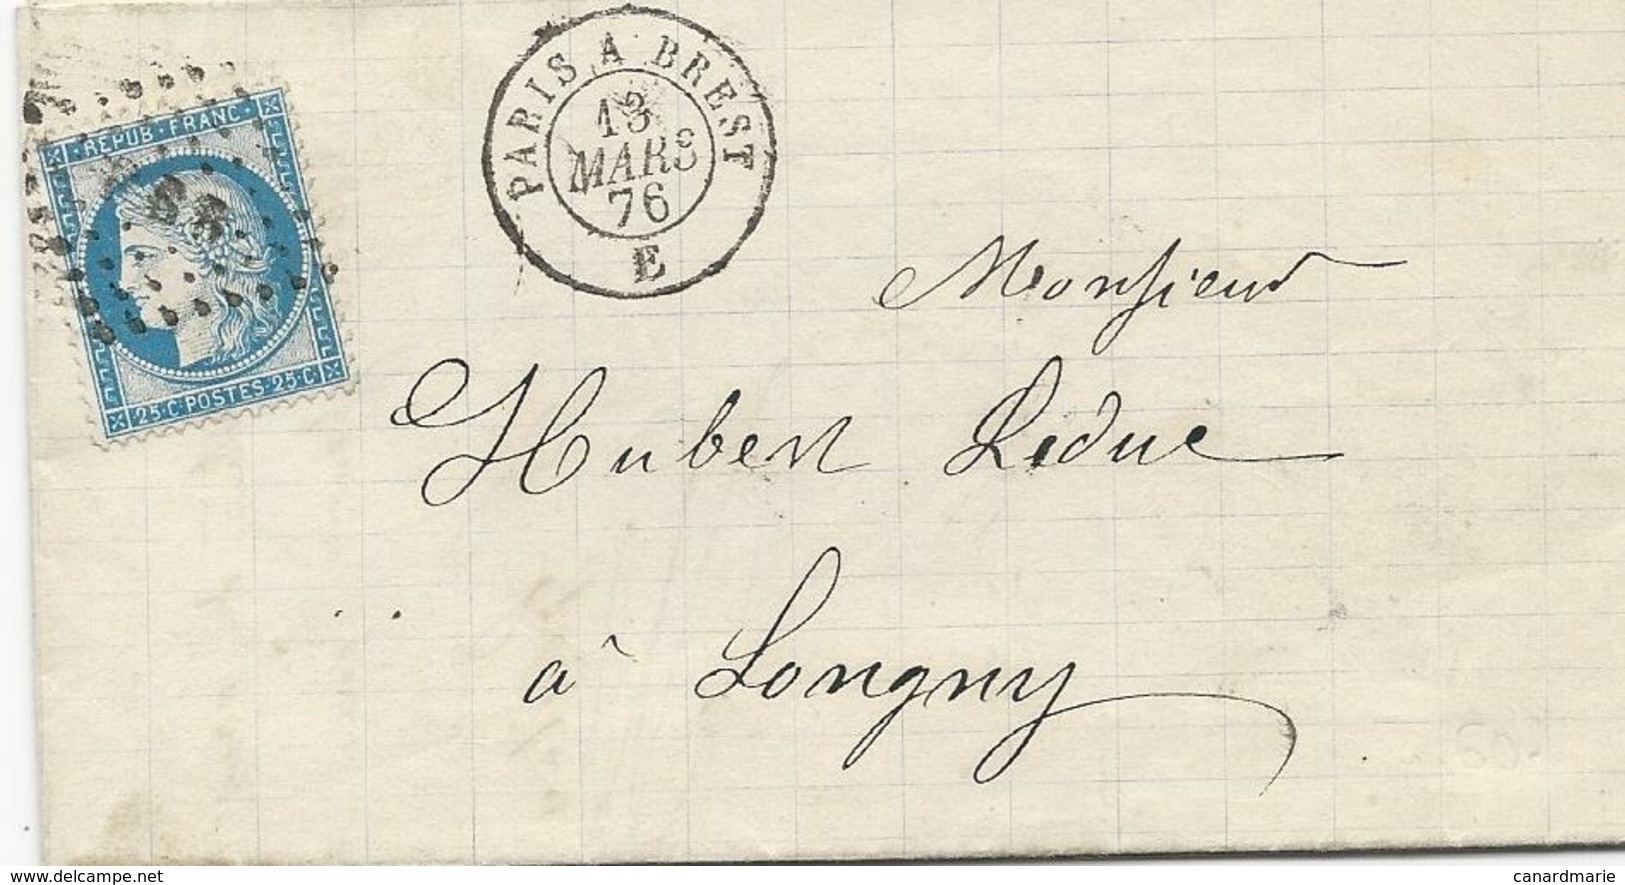 PARIS A BREST
13
MARS
76
E
REPUB · FRANC ·
25·C·POSTES·25·C
Monsieur
Hubert Leduc
à Longny
delcampe.net
canardmarie